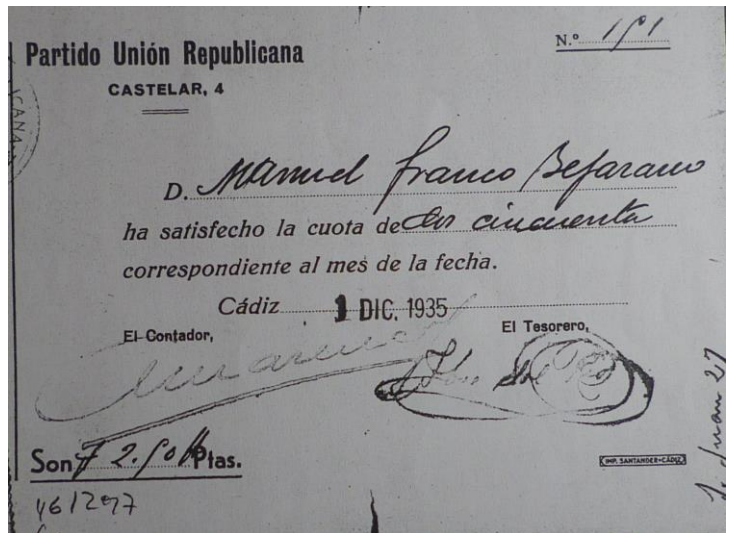 Partido Unión Republicana
CASTELAR, 4
N.º 151
ICANA
D. Manuel Franco Bejarano
ha satisfecho la cuota de dos cincuenta
correspondiente al mes de la fecha.
Cádiz 1 DIC. 1935
El Contador,
El Tesorero,
Son # 2.50 # Ptas.
IMP. SANTANDER-CÁDIZ
S. Juan 27
461297